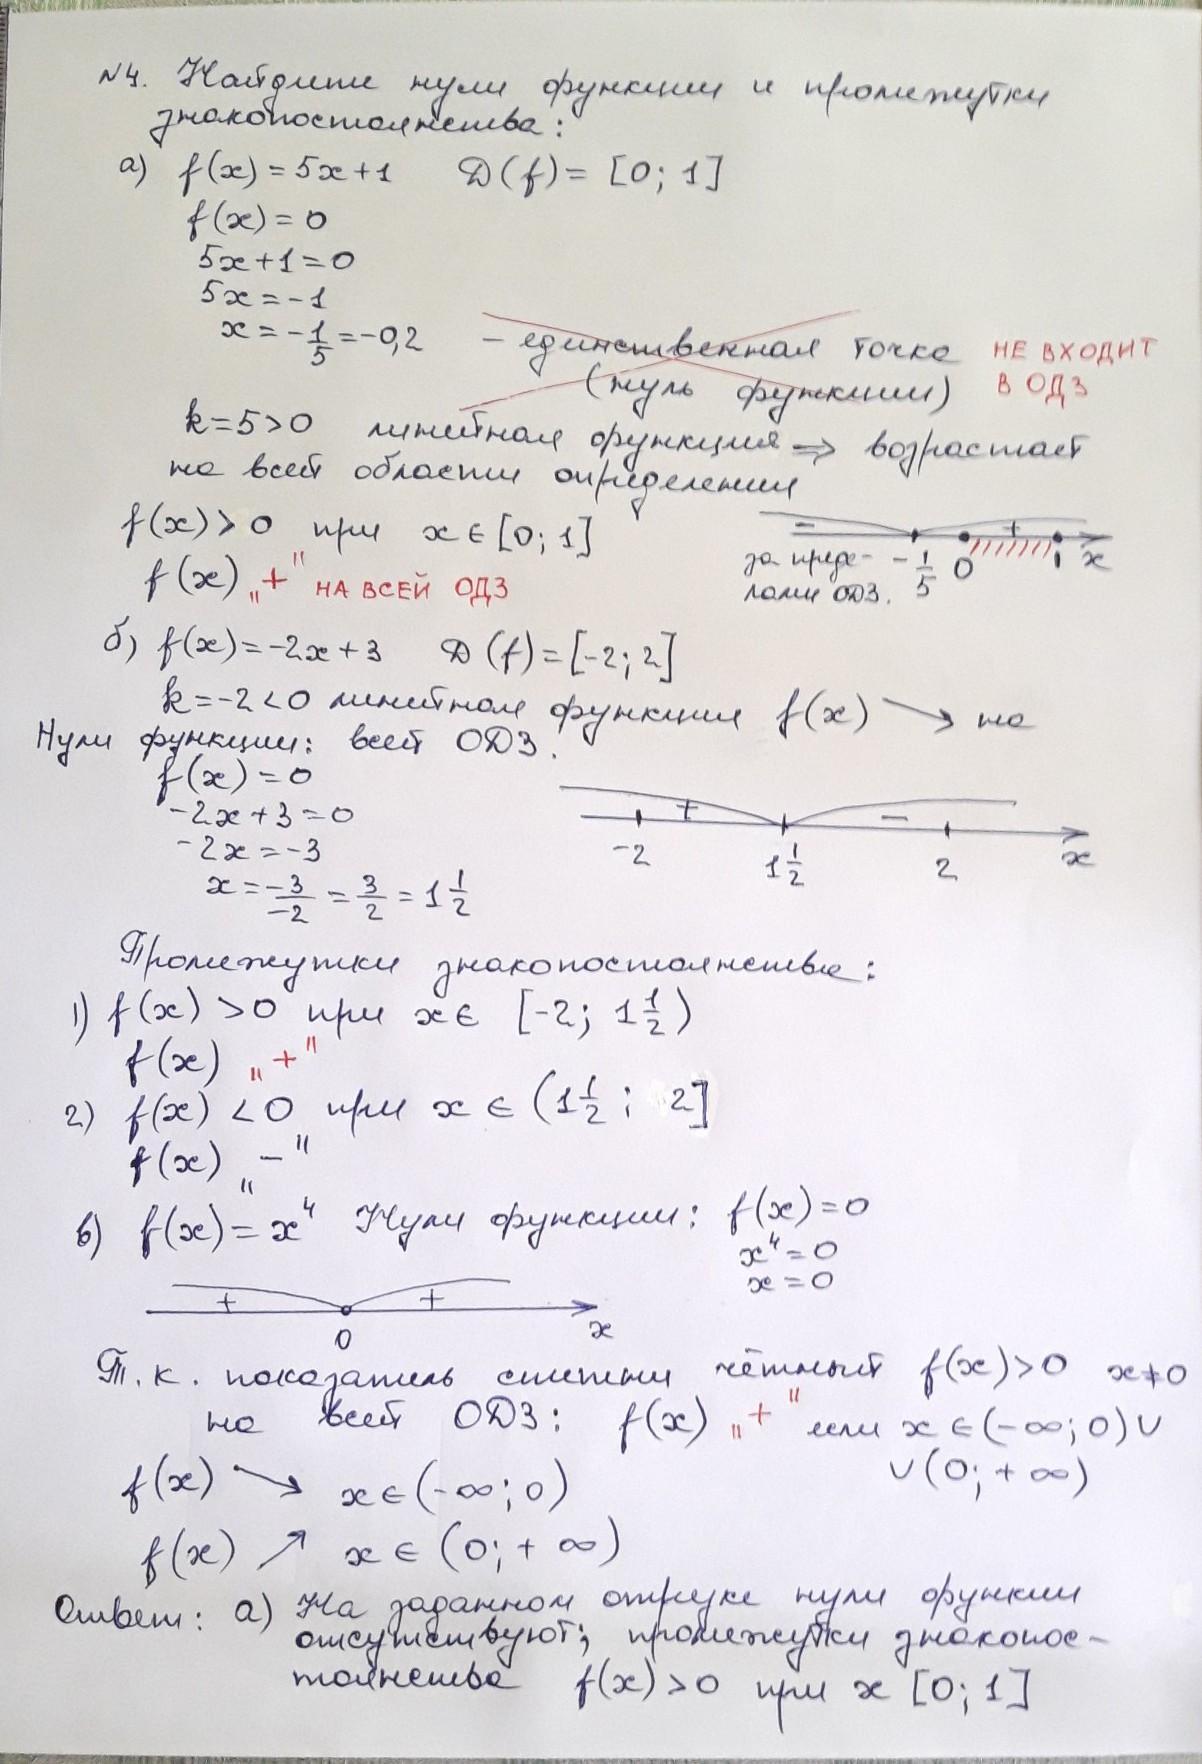 №4. Найдите нули функции и промежутки
знакопостоянства:
а) f(x) = 5x+1 D(f) = [0; 1]
f(x) = 0
5x+1=0
5x = -1
x = -1/5 = -0,2 - единственная точка НЕ ВХОДИТ
(нуль функции) В ОДЗ
k=5>0 линейная функция => возрастает
на всей области определения
f(x) > 0 при x ∈ [0; 1]
f(x) „+" НА ВСЕЙ ОДЗ
- + 
за преде- -1/5 0 1 x
лами ОДЗ.
б) f(x) = -2x+3 D(f) = [-2; 2]
k=-2<0 линейная функция f(x) ↘ на
Нули функции: всей ОДЗ.
f(x) = 0
-2x+3=0
-2x = -3
x = -3/-2 = 3/2 = 1 1/2
+ -
-2 1 1/2 2 x
Промежутки знакопостоянства:
1) f(x) > 0 при x ∈ [-2; 1 1/2)
f(x) „+"
2) f(x) < 0 при x ∈ (1 1/2 ; 2]
f(x) „-"
в) f(x) = x⁴ Нули функции: f(x) = 0
x⁴ = 0
x = 0
+ +
0 x
Т.к. показатель степени чётный f(x) > 0 x≠0
на всей ОДЗ: f(x) „+" если x ∈ (-∞; 0) ∪
∪ (0; +∞)
f(x) ↘ x ∈ (-∞; 0)
f(x) ↗ x ∈ (0; +∞)
Ответ: а) На заданном отрезке нули функции
отсутствуют; промежутки знакопос-
тоянства f(x) > 0 при x [0; 1]